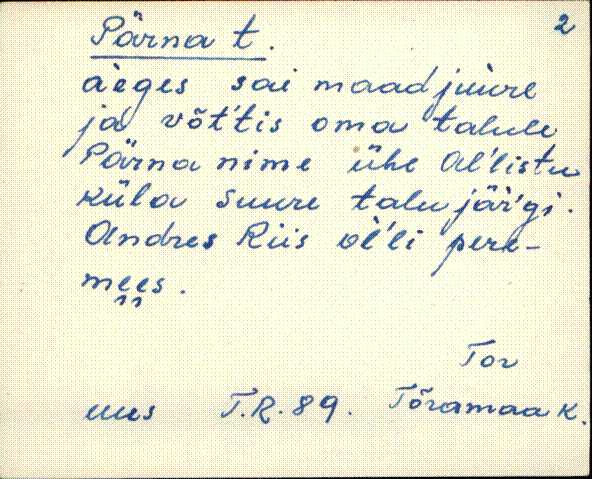 2
Pärna t.
àeges sai maad juùre
ja võt't́is oma talule
Pärna nime ühe Al'listu
küla suure talu jär'gi.
Andres Riis ol'li pere-
mees.
Tor
uus T.R. 89. Tõramaa k.